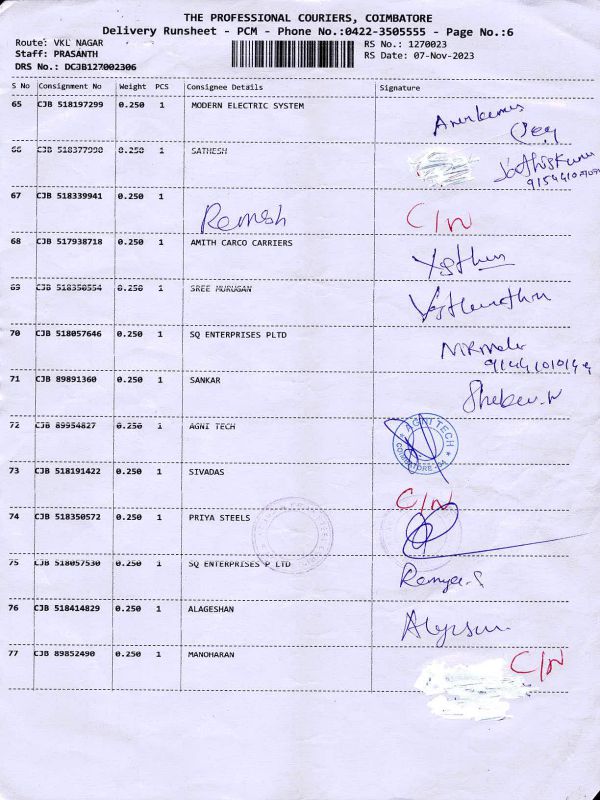 THE PROFESSIONAL COURIERS, COIMBATORE
Delivery Runsheet - PCM - Phone No.:0422-3505555 - Page No.:6
Route: VKL NAGAR
RS No.: 1270023
Staff: PRASANTH
RS Date: 07-Nov-2023
DRS No.: DCJB127002306
S No Consignment No Weight PCS Consignee Details Signature
65 CJB 518197299 0.250 1 MODERN ELECTRIC SYSTEM
66 CJB 518377990 0.250 1 SATHESH
67 CJB 518339941 0.250 1 Ramesh C/N
68 CJB 517938718 0.250 1 AMITH CARCO CARRIERS
69 CJB 518350554 0.250 1 SREE MURUGAN
70 CJB 518057646 0.250 1 SQ ENTERPRISES PLTD
71 CJB 89891360 0.250 1 SANKAR
72 CJB 89954827 0.250 1 AGNI TECH AGNI TECH
73 CJB 518191422 0.250 1 SIVADAS C/N
74 CJB 518350572 0.250 1 PRIYA STEELS
75 CJB 518057530 0.250 1 SQ ENTERPRISES P LTD Ramya.S
76 CJB 518414829 0.250 1 ALAGESHAN
77 CJB 89852490 0.250 1 MANOHARAN C/N